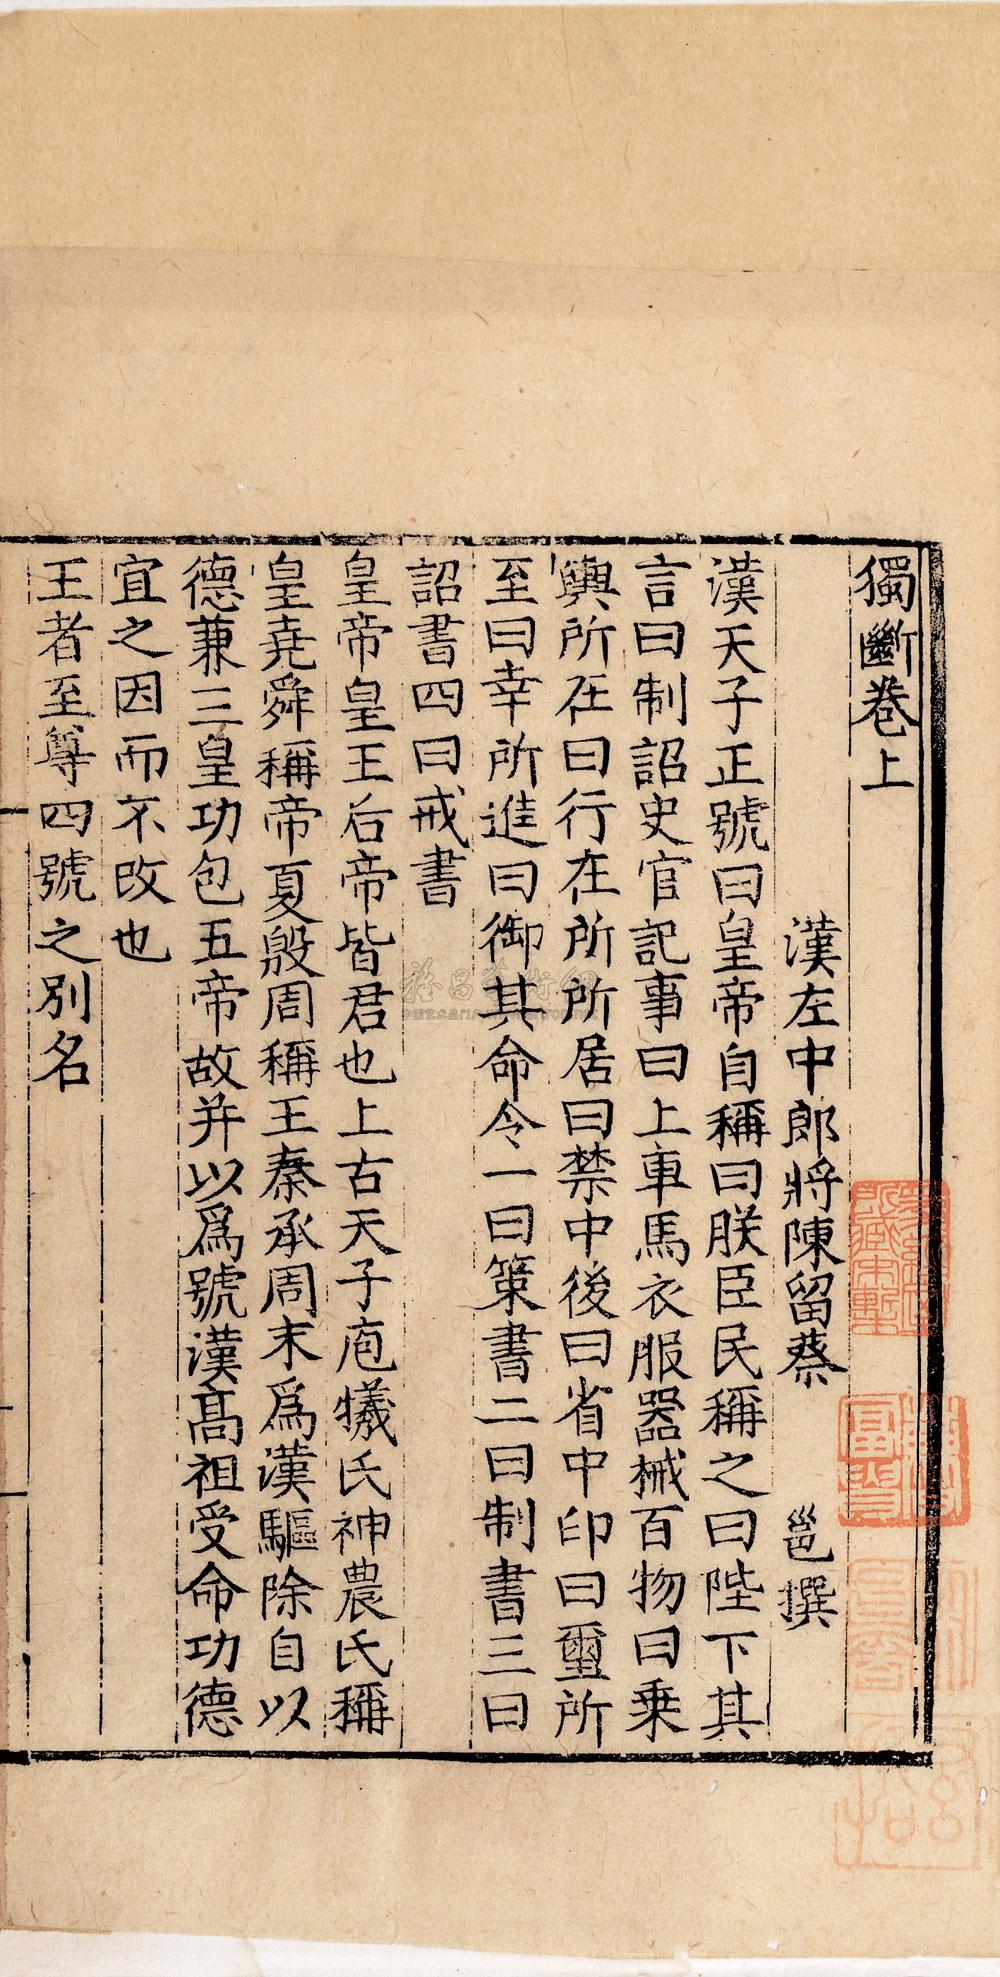 獨斷卷上
漢左中郎將陳留蔡 邕撰
漢天子正號曰皇帝自稱曰朕臣民稱之曰陛下其
言曰制詔史官記事曰上車馬衣服器械百物曰乗
輿所在曰行在所所居曰禁中後曰省中印曰璽所
至曰幸所進曰御其命令一曰策書二曰制書三曰
詔書四曰戒書
皇帝皇王后帝皆君也上古天子庖犧氏神農氏稱
皇堯舜稱帝夏殷周稱王秦承周末爲漢驅除自以
德兼三皇功包五帝故并以爲號漢髙祖受命功德
宜之因而不改也
王者至尊四號之别名